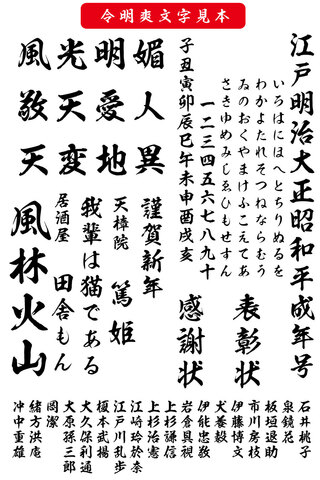 令明爽文字見本
江戸明治大正昭和平成年号
いろはにほへとちりぬるを
わかよたれそつねならむう
ゐのおくやまけふこえてあ
さきゆめみしゑひもせすん
一二三四五六七八九十
子丑寅卯辰巳午未申酉戌亥
媚人異
明愛地
光天変
風敬天
表彰状
感謝状
謹賀新年
天樟院 篤姫
我輩は猫である
居酒屋 田舎もん
風林火山
石井桃子
泉鏡花
板垣退助
市川房枝
伊藤博文
犬養毅
伊能忠敬
岩倉具視
上杉謙信
上杉治憲
江崎玲於奈
江戸川乱歩
榎本武揚
大久保利通
大原孫三郎
岡潔
緒方洪庵
冲中重雄